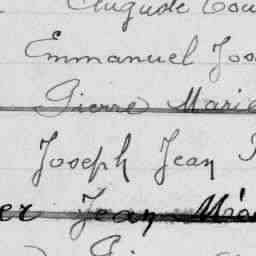 Auguste Cou
Emmanuel Jos
Pierre Marie
Joseph Jean
er Jean Méa